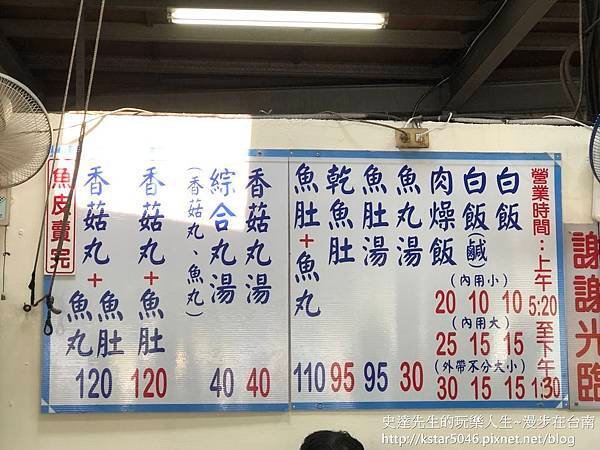 謝謝光臨
營業時間：上午5:20至下午1:30
白飯
（內用小）10
（內用大）15
（外帶不分大小）15
白飯鹹
10
15
15
肉燥飯
20
25
30
魚丸湯 30
魚肚湯 95
乾魚肚 95
魚肚＋魚丸 110
香菇丸湯 40
綜合丸湯 40
（香菇丸、魚丸）
香菇丸＋魚肚 120
香菇丸＋魚肚魚丸 120
魚皮賣完
史達先生的玩樂人生~漫步在台南
http://kstar5046.pixnet.net/blog